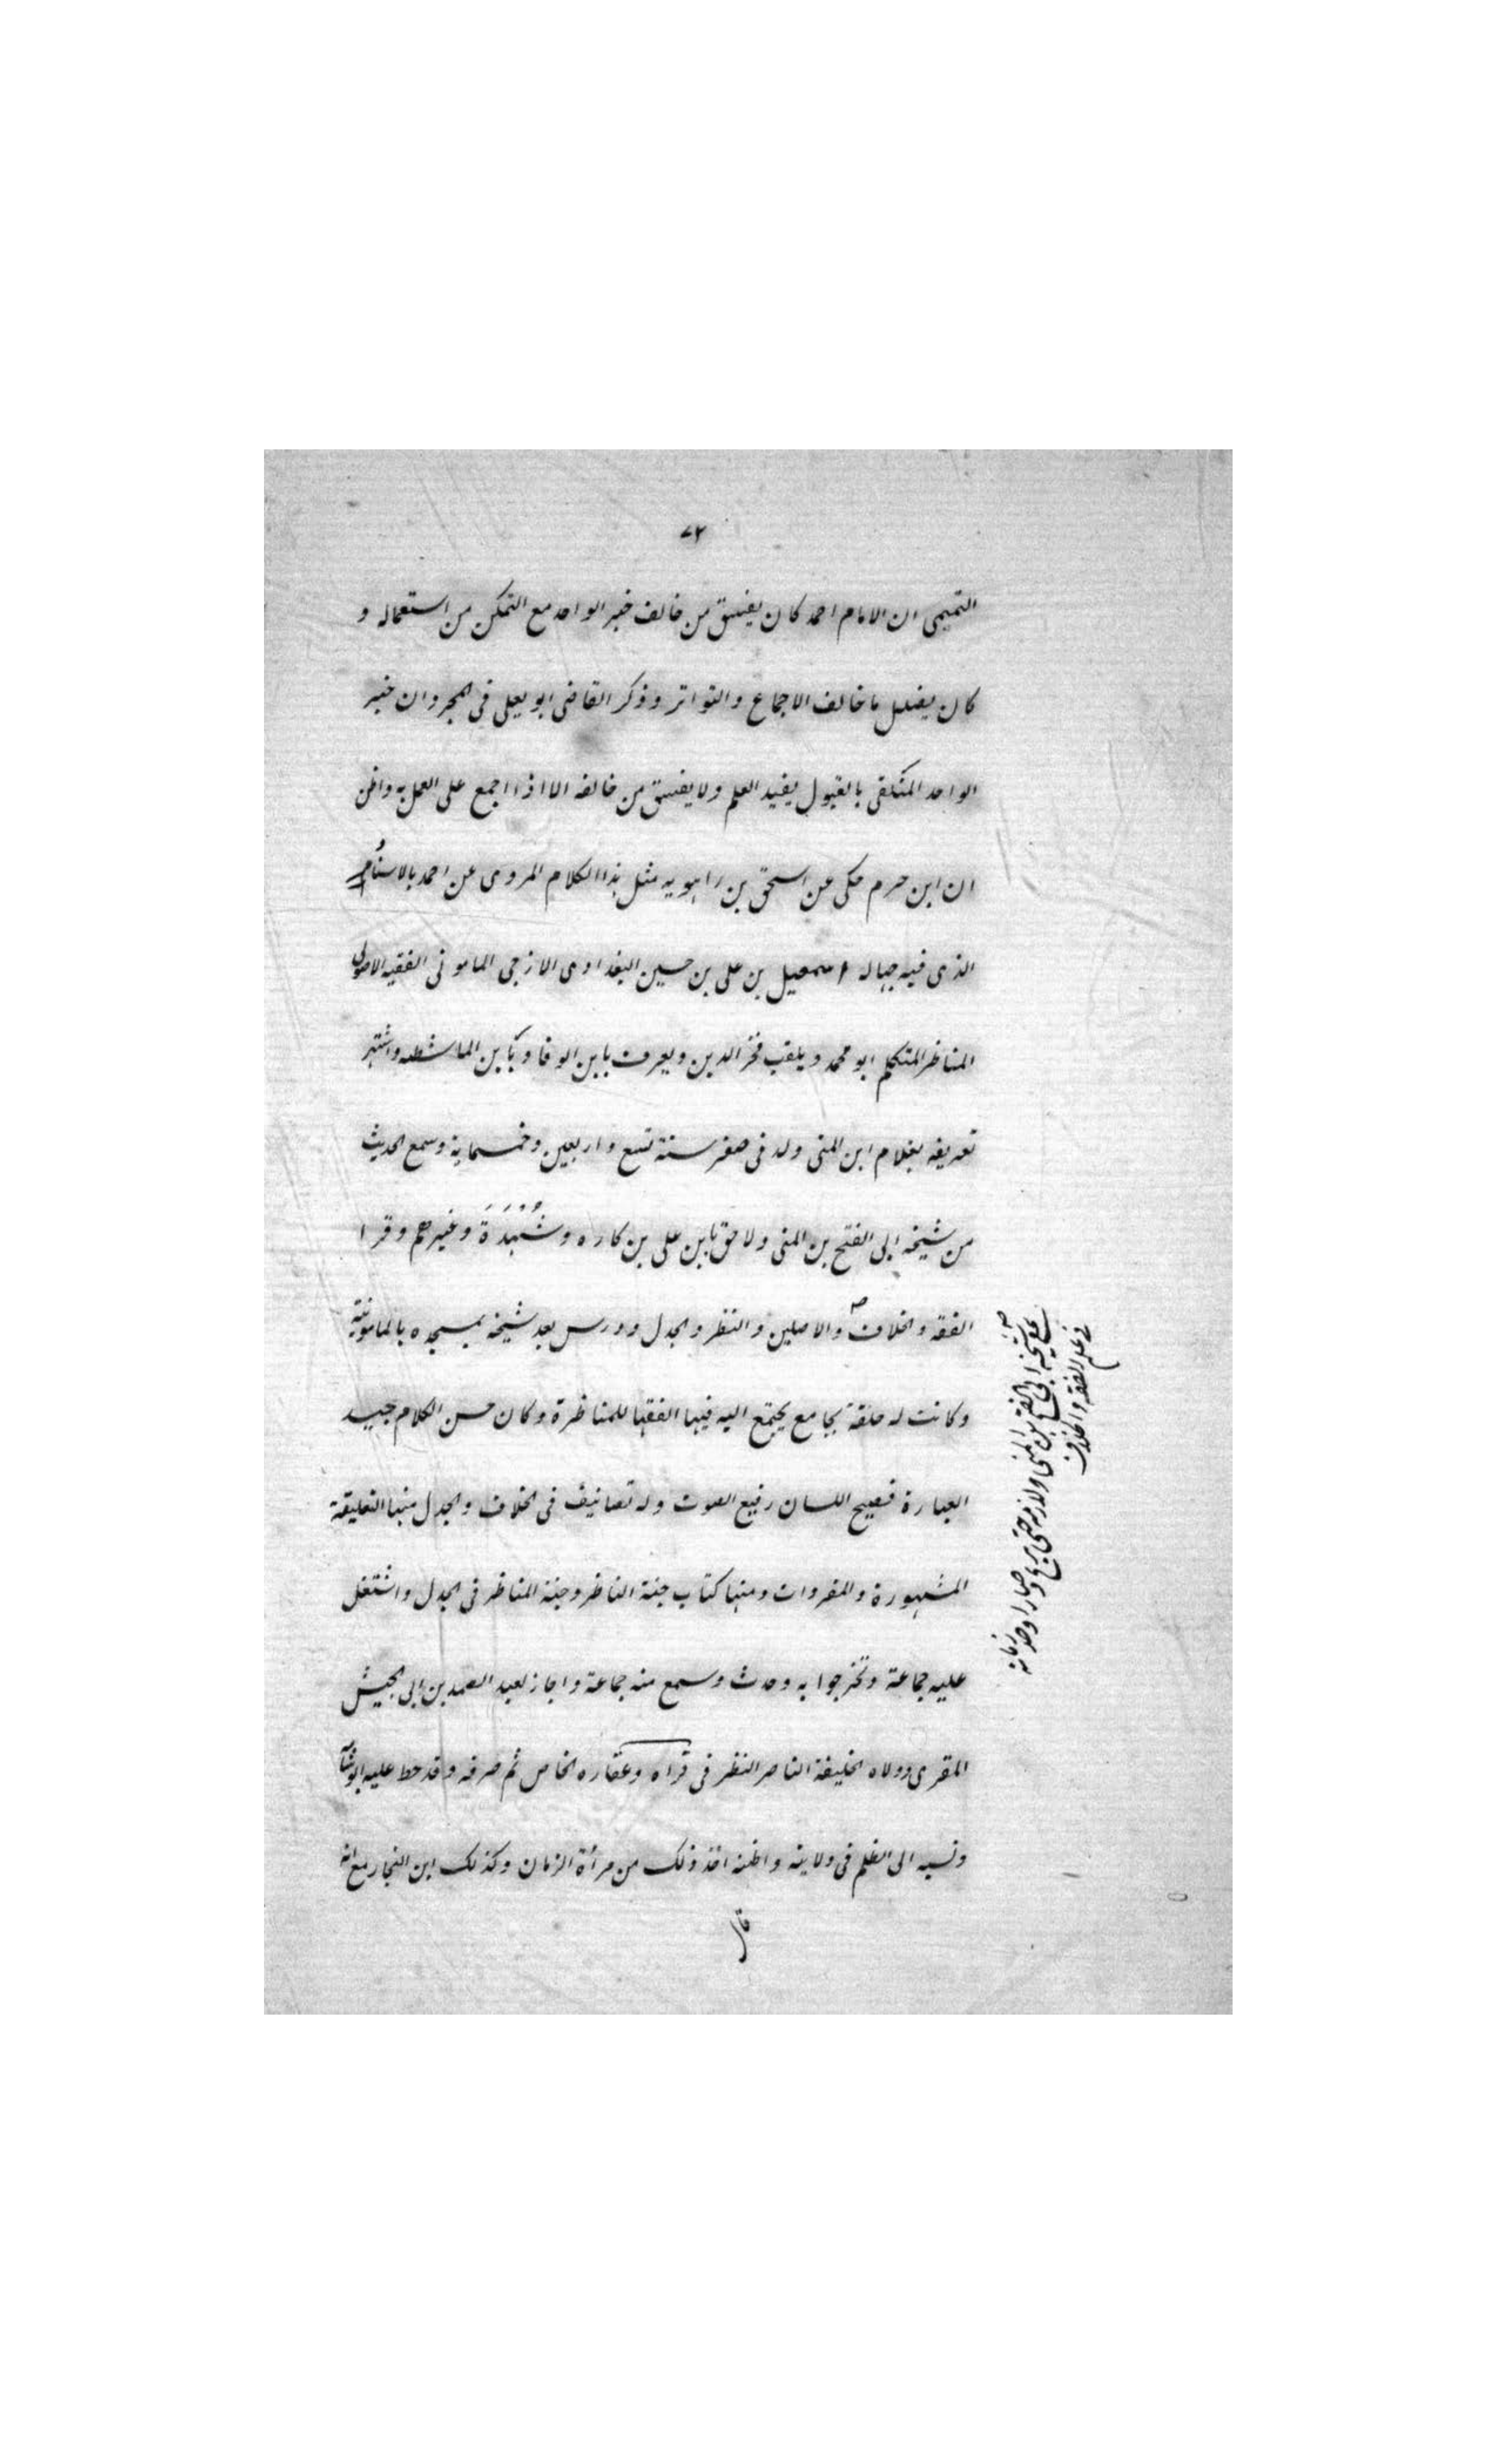 ٧٢
التميمى ان الامام احمد كان يفسق من خالف خبر الواحد مع التمكن من استعماله و
كان يضلل ما خالف الاجماع والتواتر وذكر القاضى ابو يعلى فى المجرد ان خبر
الواحد المتلقى بالقبول يفيد العلم ولا يفسق من خالفه الا اذا اجمع على العمل به واظن
ان ابن حزم حكى عن اسحق بن راهويه مثل هذا الكلام المروى عن احمد بالاسناد
الذى فيه جهاله اسمعيل بن على بن حسين البغدادى الازجى المامونى الفقيه الاصولى
المناظر المتكلم ابو محمد ويلقب فخر الدين ويعرف بابن الوفا وبابن الماشطه واشتهر
تعريفه بغلام ابن المنى ولد فى صفر سنة تسع واربعين وخمسماية وسمع الحديث
من شيخه ابى الفتح بن المنى ولاحق بابن على بن كاره وشُهْدَةَ وغيرهم وقرا
الفقه والخلاف والاصلين والنظر والجدل ودرس بعد شيخه بمسجده بالمامونية
وكانت له حلقة بجامع يجتمع اليه فيها الفقها للمناظرة وكان حسن الكلام جيد
العبارة فصيح اللسان رفيع الصوت وله تصانيف فى الخلاف والجدل منها التعليقة
المشهورة والمفردات ومنها كتاب جنة الناظر وجنة المناظر فى الجدل واشتغل
عليه جماعة وتخرجوا به وحدث وسمع منه جماعة واجاز لعبد الصمد بن ابى الجيش
المقرى وولاه الخليفة الناصر النظر فى قراه وعقاره الخاص ثم صرفه وقد حط عليه ابو شامه
ونسبه الى الظلم فى ولايته واظنه اخذ ذلك من مرأة الزمان وكذلك ابن النجار مع انه
قال
على شيخه ابى الفتح بن المنى ولازمه حتى برع وصار اوحد زمانه
فى علم الفقه والخلاف